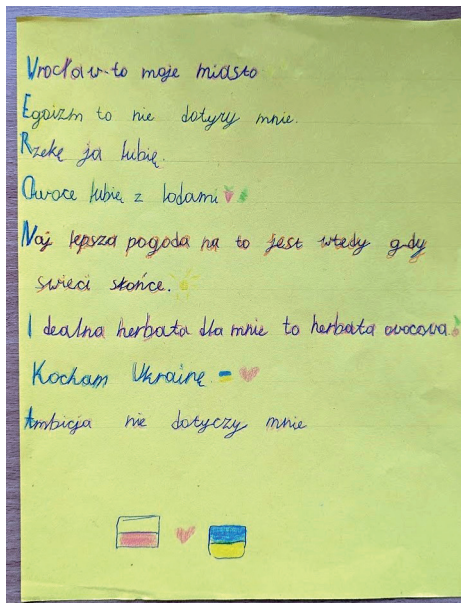 Vrocław-to moje miasto
Egoizm to nie dotyzy mnie.
Rzekę ja lubię.
Owoce lubię z lodami
Naj lepsza pogoda na to jest wtedy gdy
swieci słońce.
I dealna herbata dla mnie to herbata owocowa.
Kocham Ukrainę
Ambicja nie dotyczy mnie